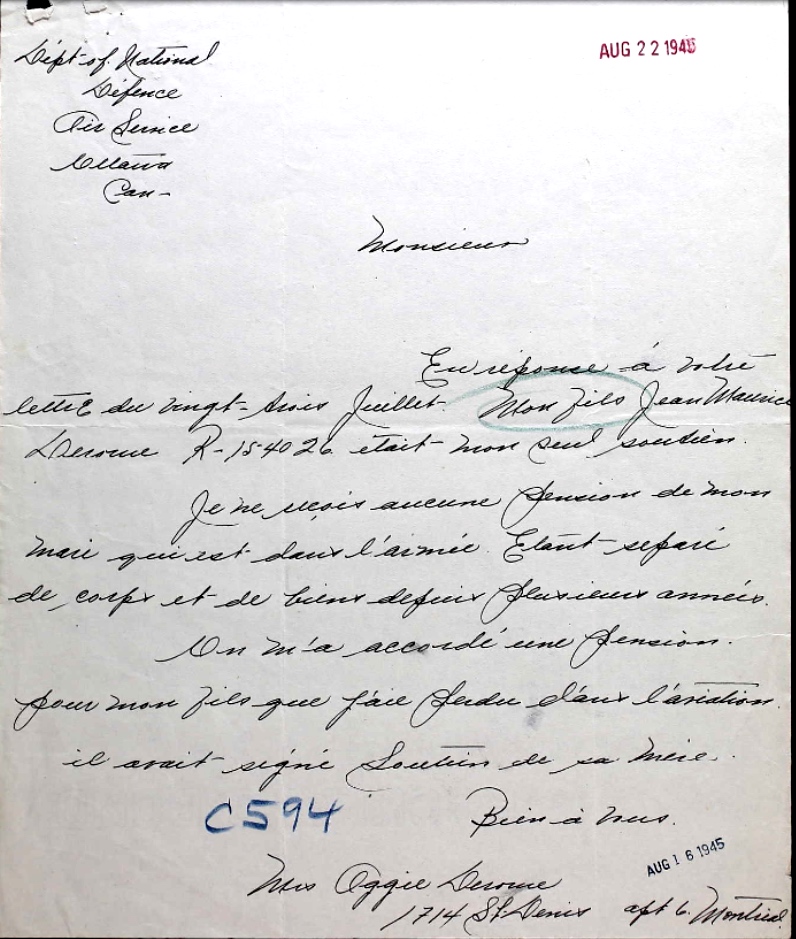 AUG 22 1945
Dépt-of. National
Défence
Air Service
Ottawa
Can-
Monsieur
En réponse à votre
lettre du vingt-trois Juillet. Mon fils Jean Maurice
Derome R-154026. était mon seul soutien.
Je ne reçois aucune pension de mon
mari qui est dans l'armée. Etant séparé
de corps et de biens depuis plusieurs années.
On m'a accordé une pension.
pour mon fils que j'aie perdu dans l'aviation.
il avait signé Soutien de sa mère.
C594
Bien à vous.
AUG 16 1945
Mrs Oggie Derome
1714 St-Denis apt 6. Montreal.